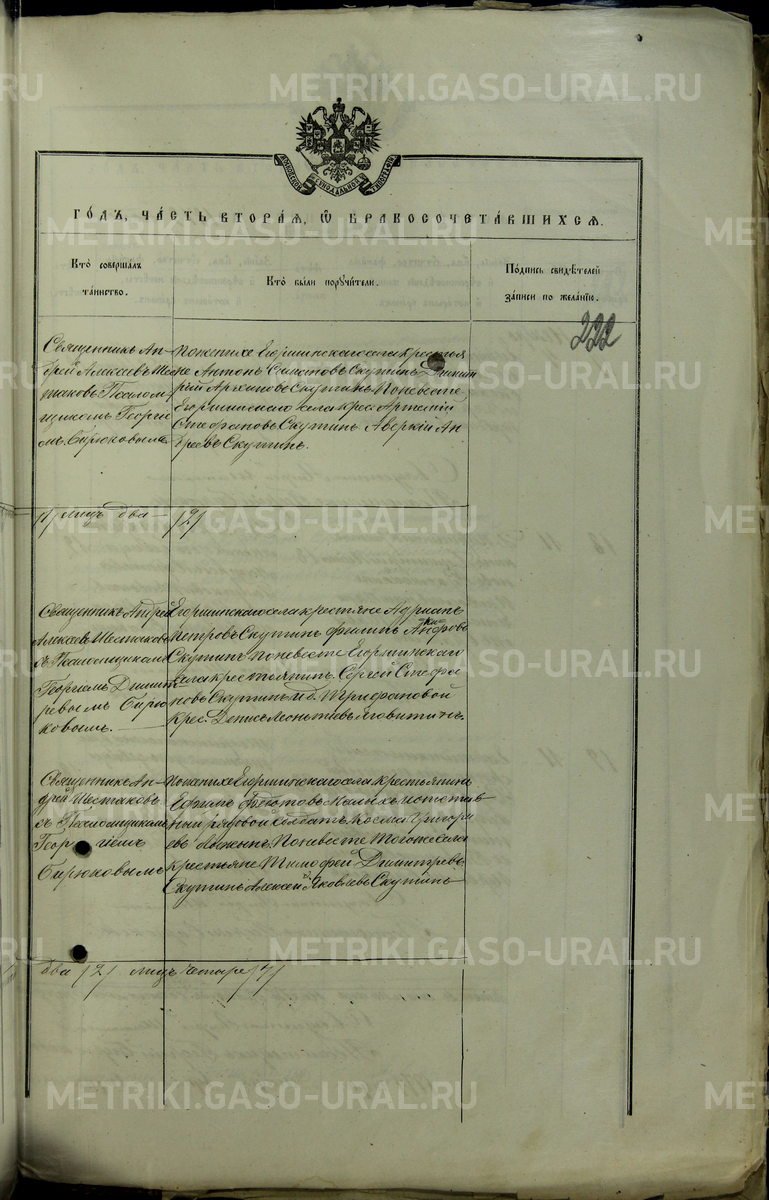 METRIKI.GASO-URAL.RU
ГО́ДЪ, ЧА́СТЬ ВТОРА́Я, Ѽ БРАКОСОЧЕТА́ВШИХСЯ.
Кто̀ соверша́лъ
та́инство.
Кто̀ бы́ли порꙋчи́тели.
По́дпись свидѣ́телей
за́писи по жела́нїю.
222
Священникъ Ан-
дрей Алексѣевъ Шес
таковъ Псалом-
щикомъ Георгі
омъ Бирюковымъ
По женихе Егоршинскаго села крестья
не Антонъ Скутинъ Димит
рій Архиповъ Скутинъ. По невесте
Егоршинскаго села крес. Артемій
Стефановъ Скутинъ Аверкій Ан-
дреевъ Скутинъ.
/1/ лицъ два
/2/
Священникъ Андрей
Алексѣевъ Шестаковъ
съ Псаломщикомъ
Георгіемъ Димит
ревымъ Бирю
ковымъ.
Егоршинскаго села крестьяне Адріанъ
Петровъ Скутинъ Филипъ
Скутинъ. По невесте Егоршинскаго
села крестьянинъ Сергей Стефа
новъ Скутинъ и д. Трифановой
крес. Денисъ Леонтьевъ
Священникъ Ан-
дрей Шестаковъ
съ Псаломщикомъ
Георгіемъ
Бирюковымъ
По женихе Егоршинскаго села крестьянинъ
Ефимъ Федотовъ Малыхъ и отстав
ный рядовой солдатъ Косма Григорі
евъ По невесте того же села
крестьяне Тимофей Димитревъ
Скутинъ Алексей Яковлевъ Скутинъ
два /2/ лицъ четыре /4/